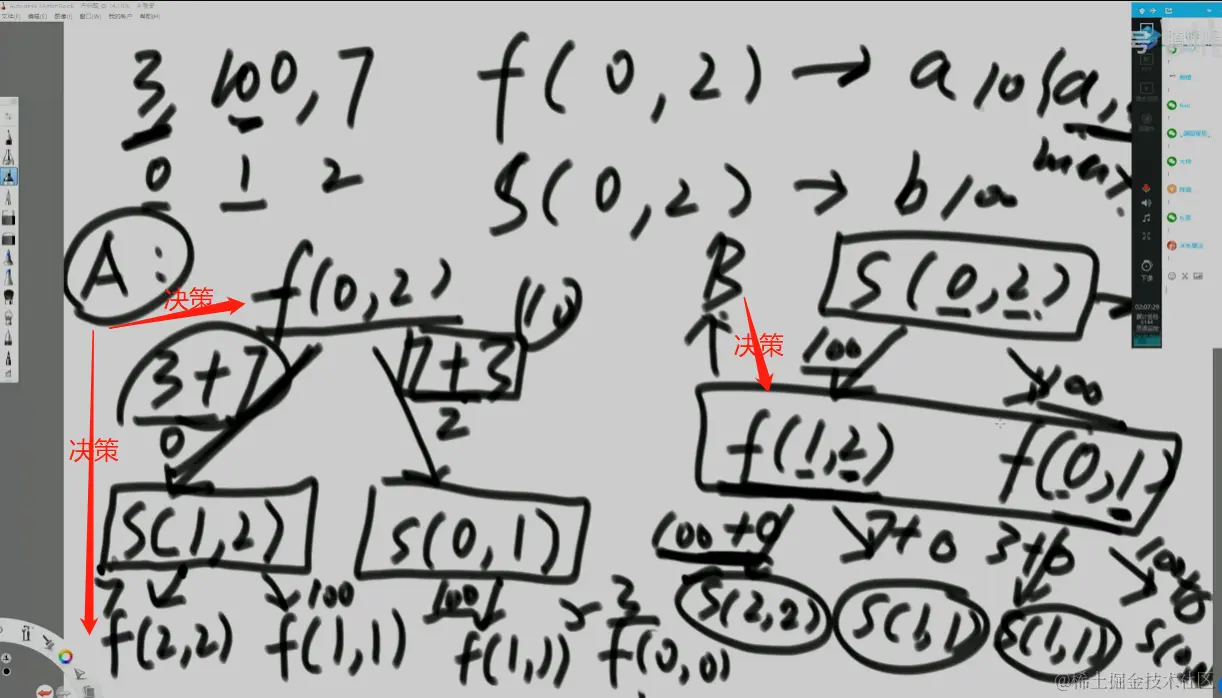 3, 100, 7
f(0,2) → a 10
0 1 2
S(0,2) → b 100
A:
决策
f(0,2)
(10)
B
S(0,2)
3+7
0
7+3
2
决策
100
100
决策
f(1,2) f(0,1)
S(1,2)
S(0,1)
100+0
7+0
3+0
7
100
100
3
f(2,2) f(1,1) f(1,1) f(0,0)
S(2,2) S(1,1) S(1,1)
02:07:29
@稀土掘金技术社区